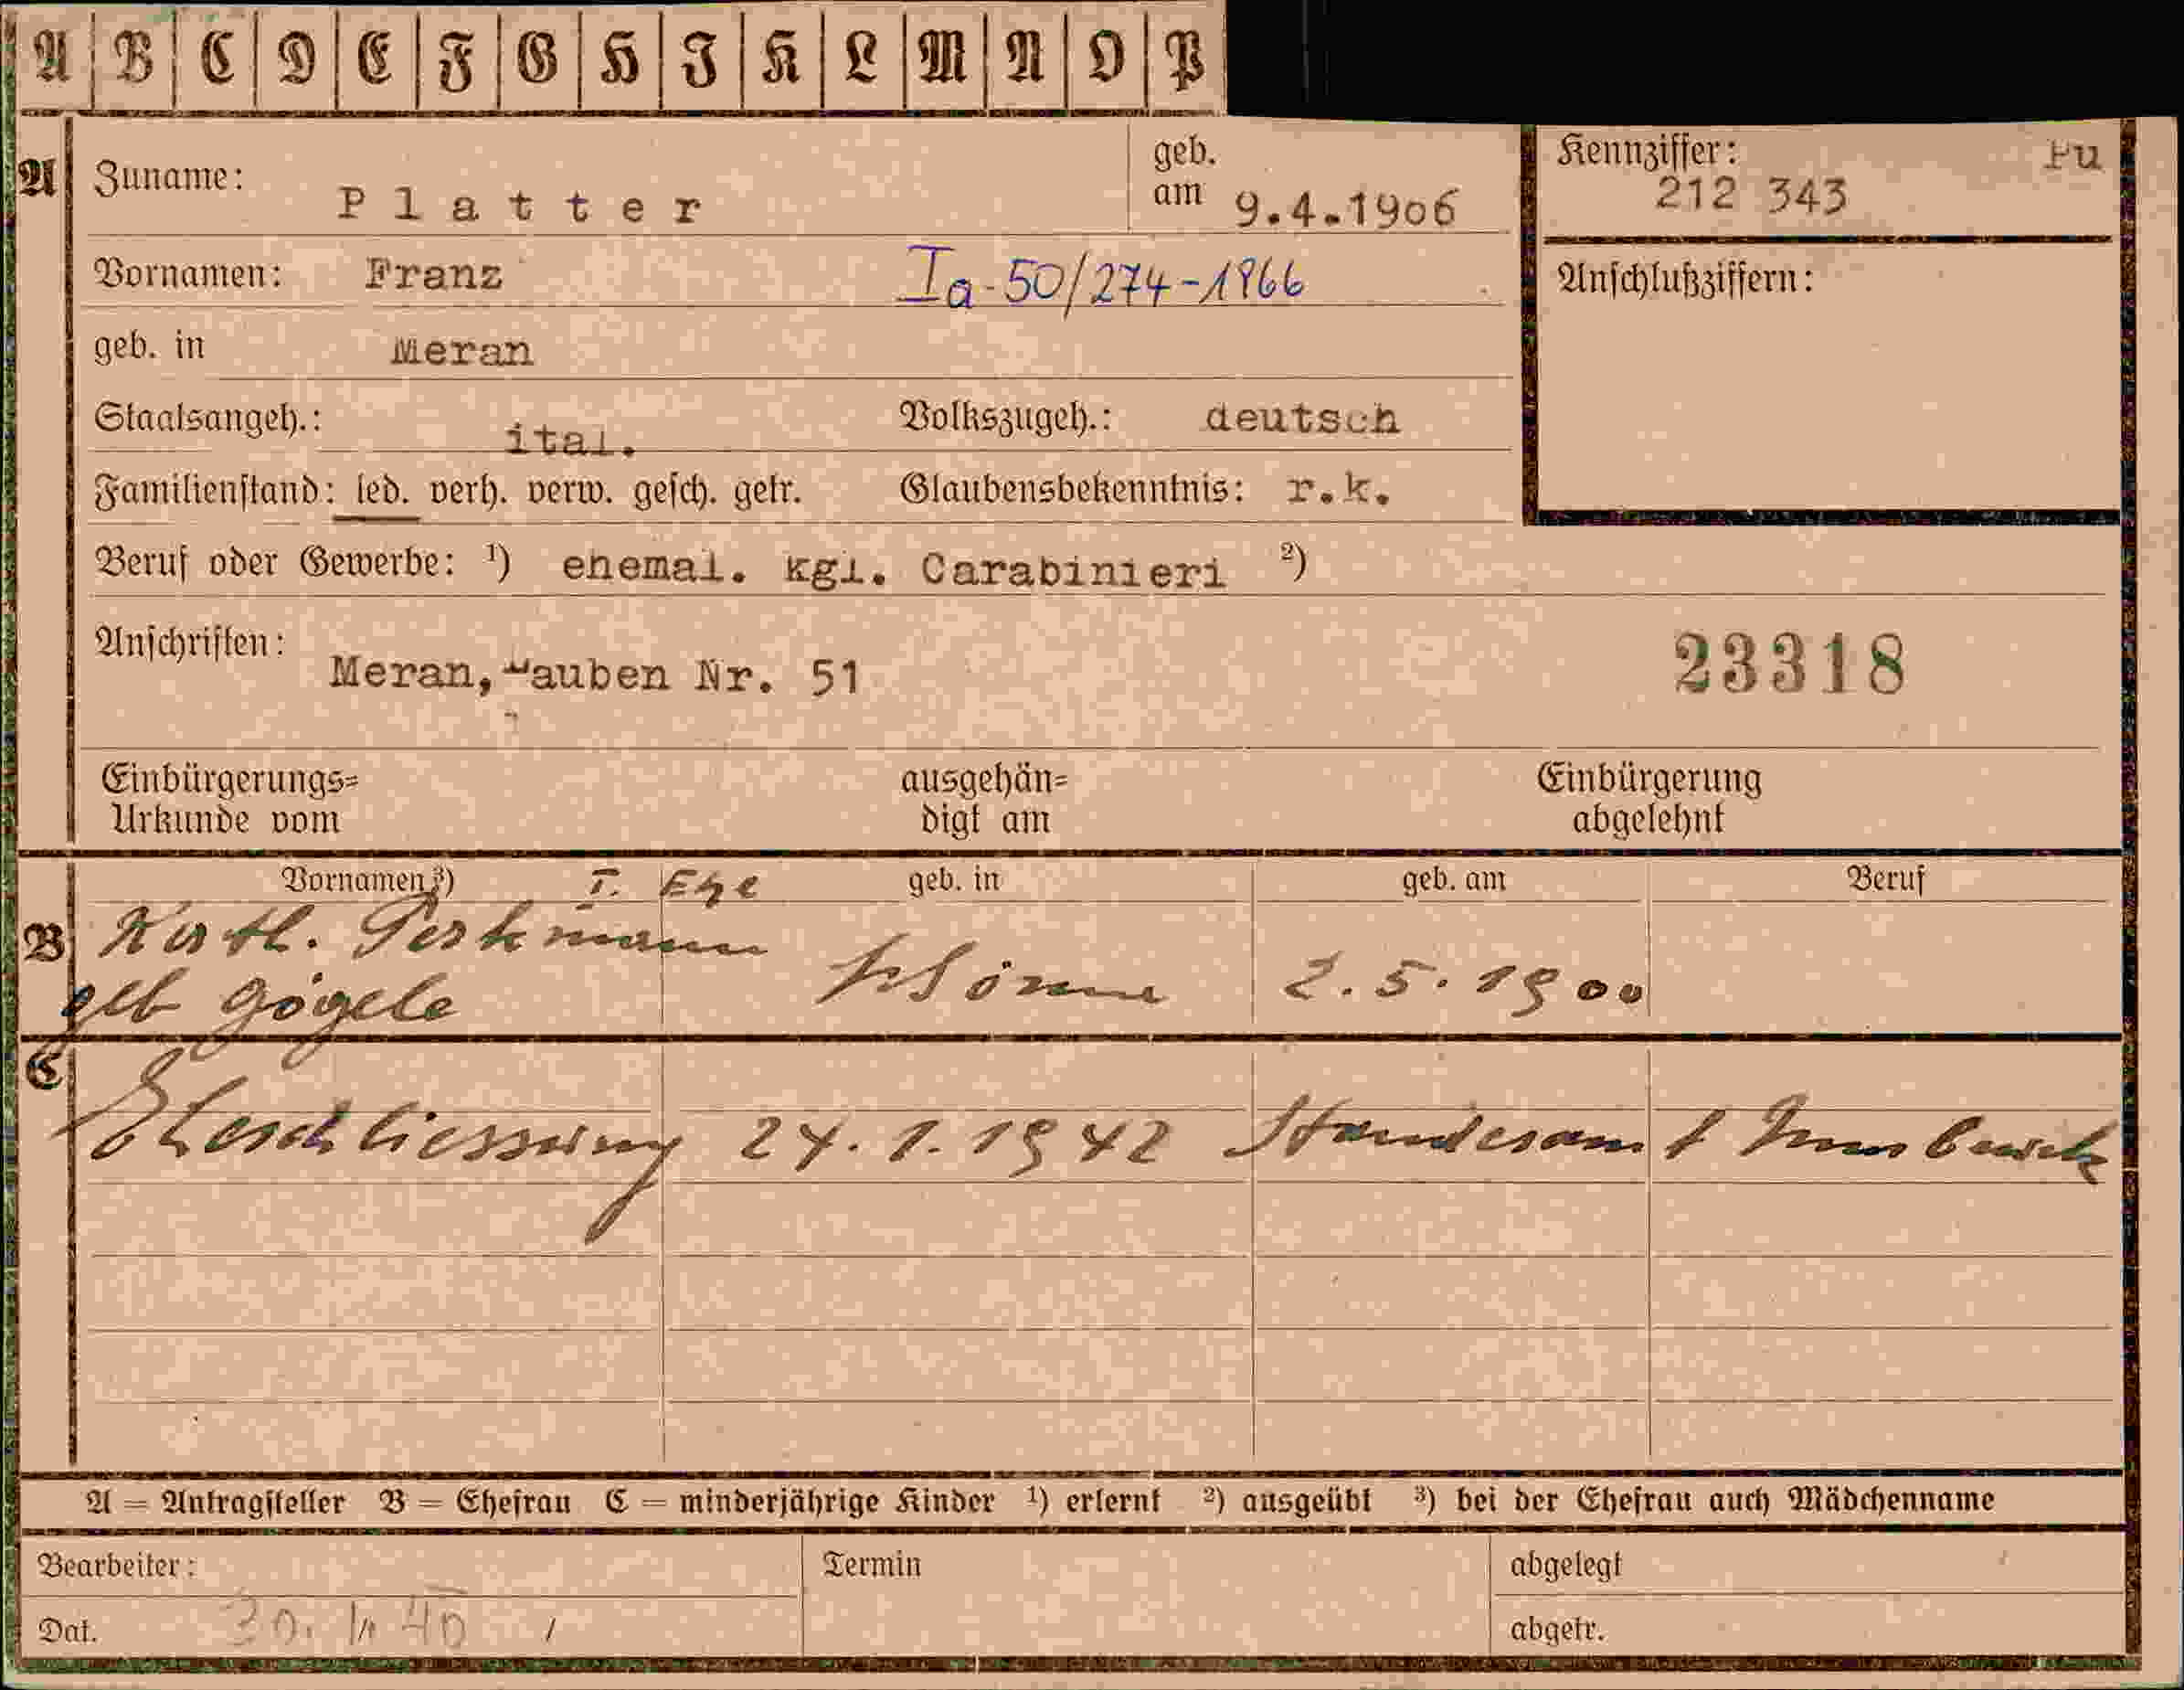 A B C D E F G H I K L M N O P
A Zuname: Platter geb. am 9.4.1906 Kennziffer: 212 343
Vornamen: Franz Ia-50/274-1966 Anschlußziffern:
geb. in Meran
Staatsangeh.: ital. Volkszugeh.: deutsch
Familienstand: led. verh. verw. gesch. getr. Glaubensbekenntnis: r.k.
Beruf oder Gewerbe: ¹) ehemal. kgl. Carabinieri ²)
Anschriften: Meran, Lauben Nr. 51 23318
Einbürgerungs= Urkunde vom ausgehän= digt am Einbürgerung abgelehnt
Vornamen ³) I. Ehe geb. in geb. am Beruf
B Kath. Perkmann
geb Gögele 2.5.1900
C Eheschliessung 24.1.1942 Standesamt Innsbruck
A = Antragsteller B = Ehefrau C = minderjährige Kinder ¹) erlernt ²) ausgeübt ³) bei der Ehefrau auch Mädchenname
Bearbeiter: Termin abgelegt
Dat. abgetr.